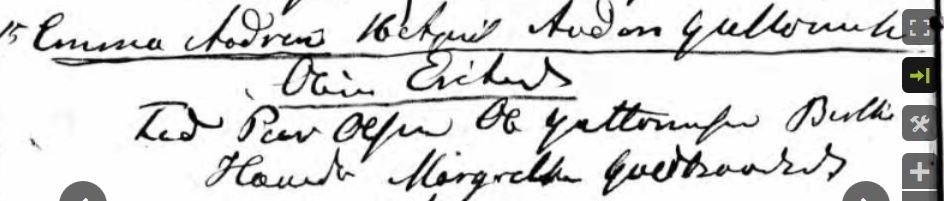 15 Emma Andrea 16 April Anders Guttormsen
Oline Erichsd
Fad Peer Olsen Ole Guttormsen Berthe
Hansd Margrethe Guldbrandsd